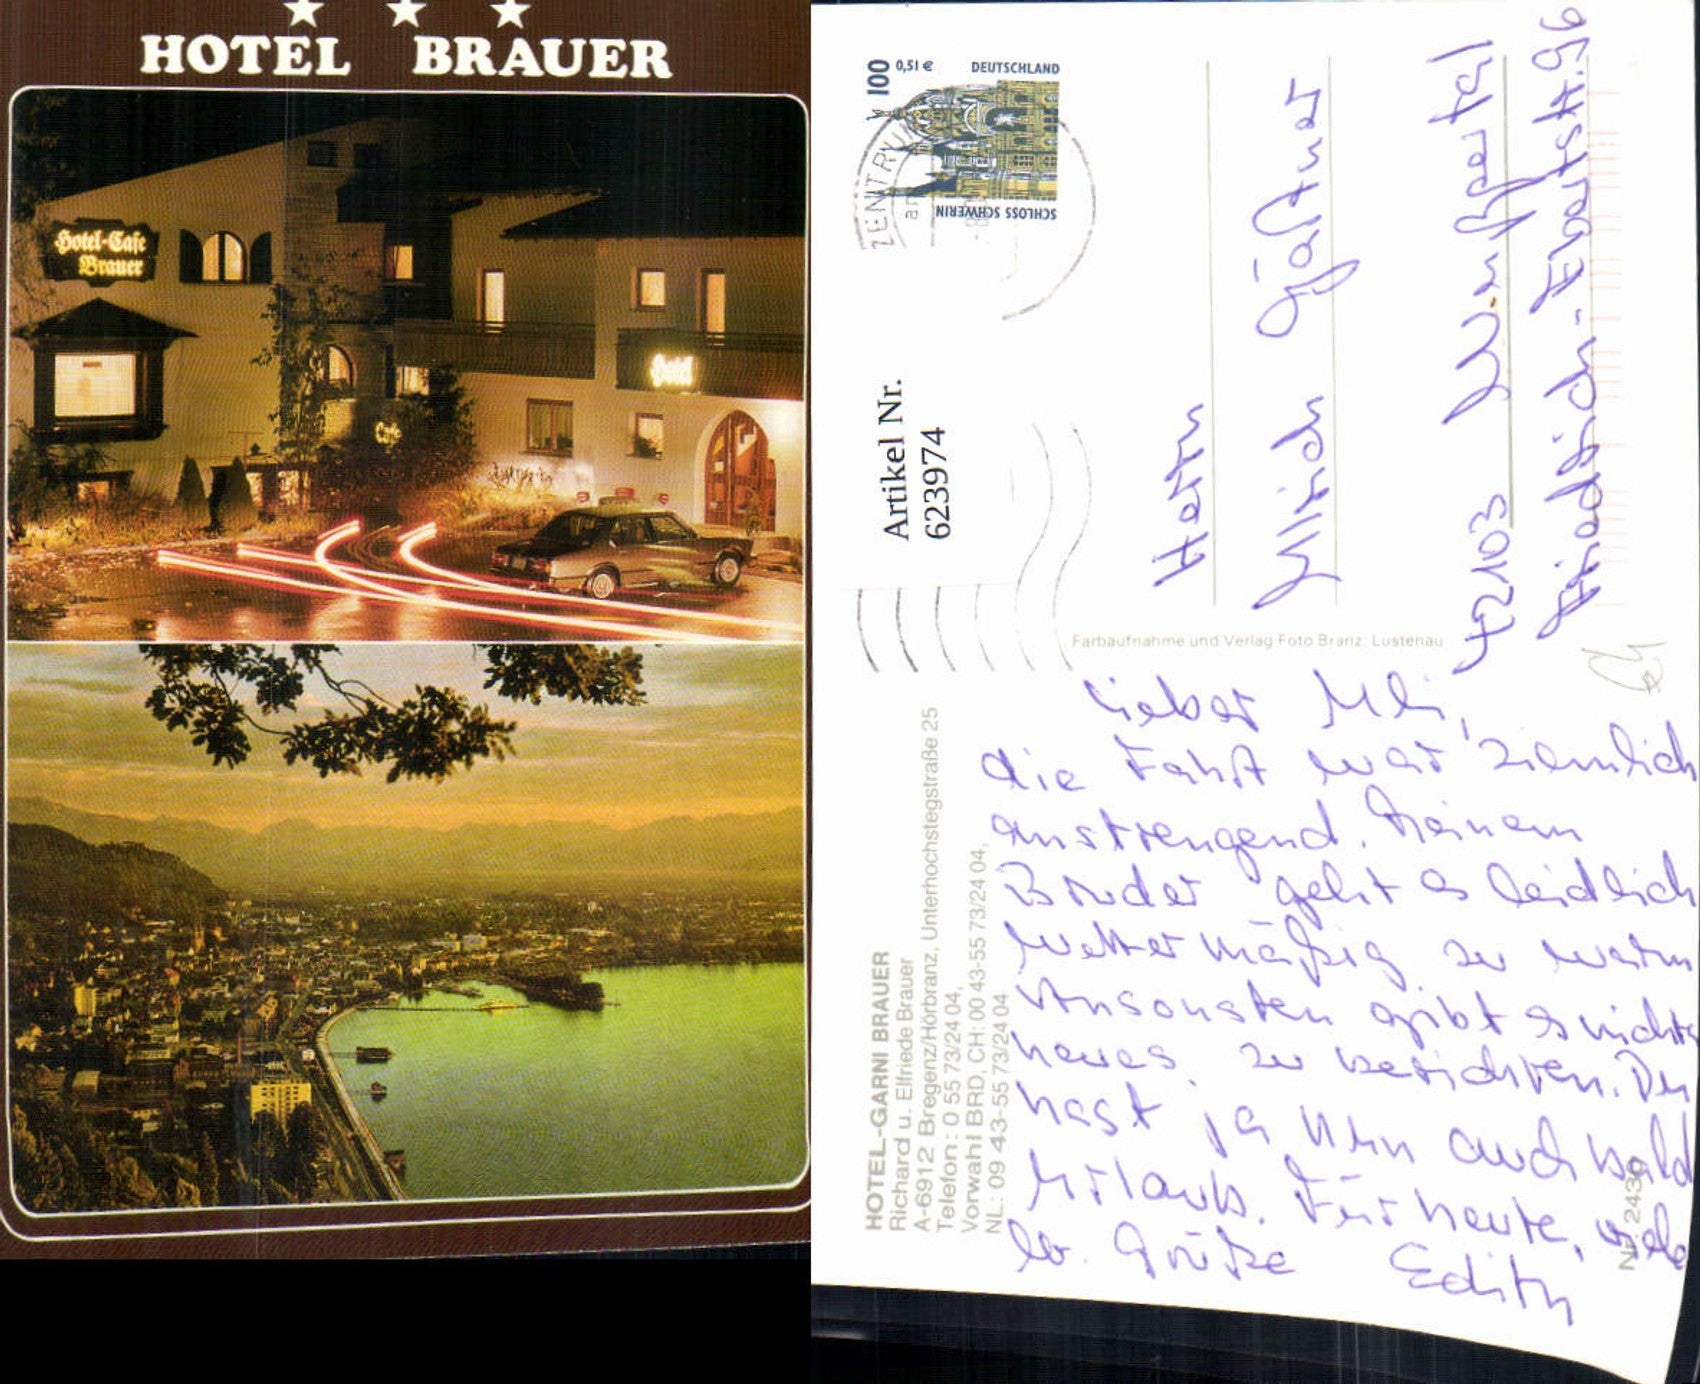 HOTEL BRAUER
Hotel-Cafe
Brauer
Hotel
Cafe
100 0,51 € DEUTSCHLAND
SCHLOSS SCHWERIN
ZENTRUM
Artikel Nr.
6239974
Herrn
Ulrich Gärtner
42103 Wuppertal
Friedrich-Ebertstr. 96
Farbaufnahme und Verlag Foto Branz, Lustenau
HOTEL-GARNI BRAUER
Richard u. Elfriede Brauer
A-6912 Bregenz/Hörbranz, Unterhochstegstraße 25
Telefon: 0 55 73/24 04,
Vorwahl BRD, CH: 00 43-55 73/24 04,
NL: 09 43-55 73/24 04
Nr. 2439
Lieber Uli,
die Fahrt war ziemlich
anstrengend. Meinem
Bruder geht es leidlich
wettermäßig zu warm
Ansonsten gibt es nichts
neues zu berichten. Du
hast ja nun auch bald
Urlaub. Für heute, viele
lb. Grüße Edith